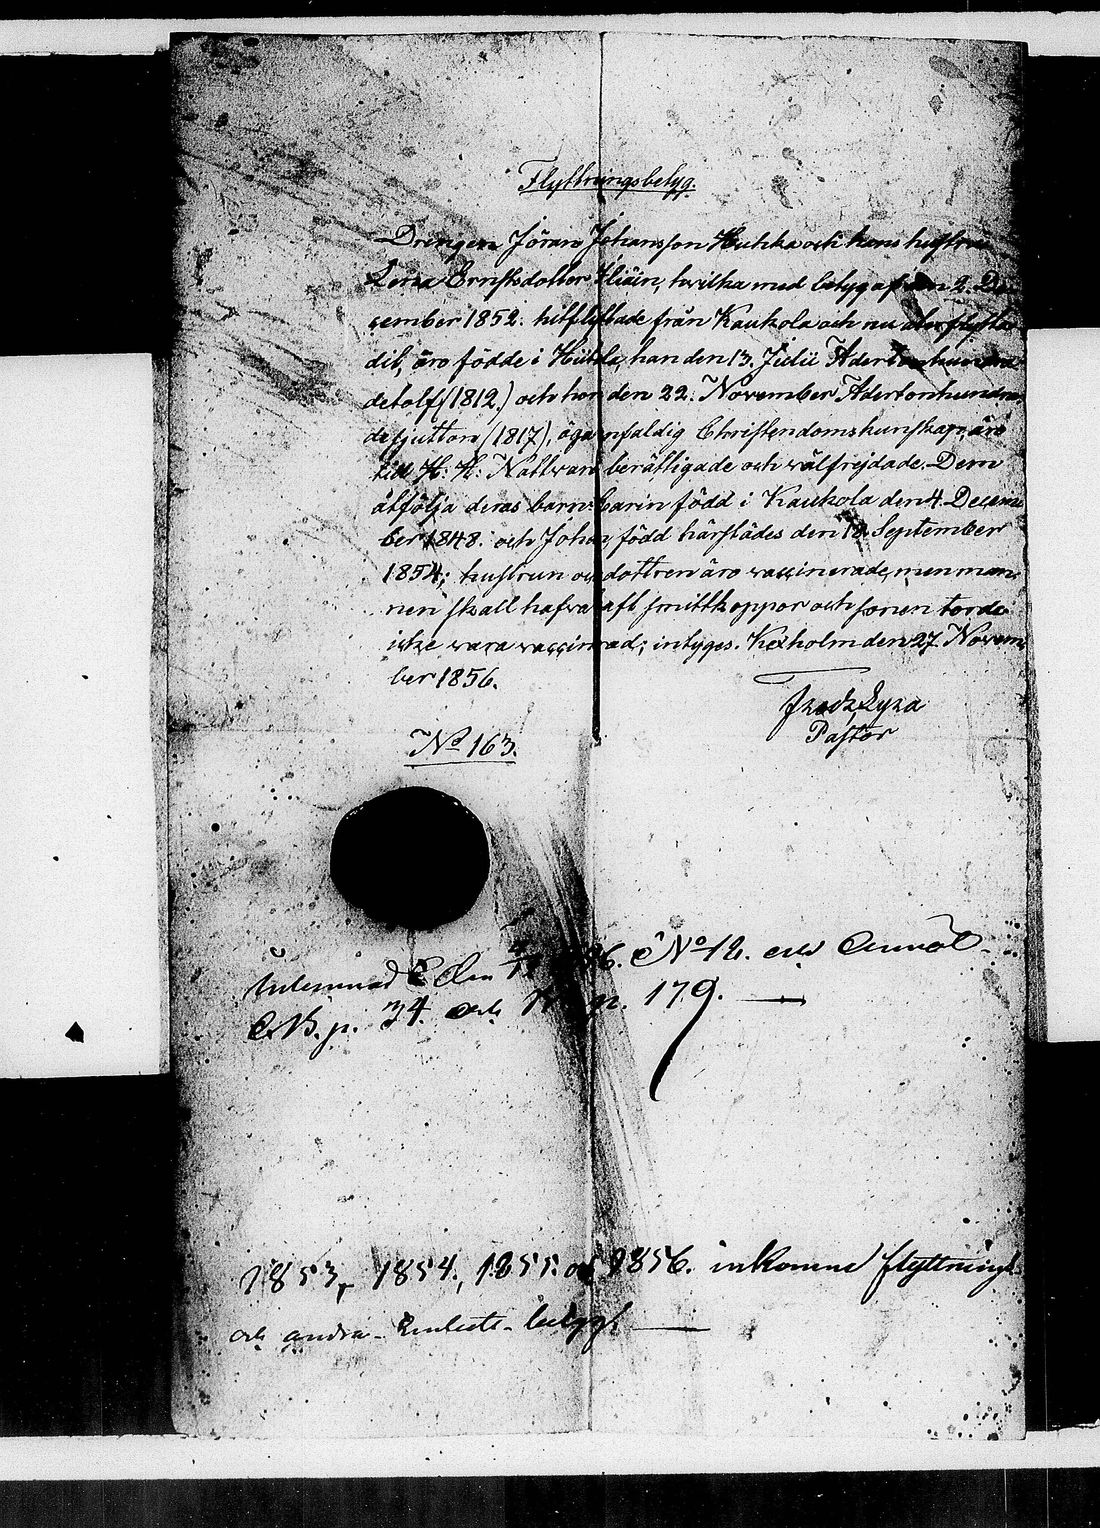 Flyttningsbetyg.
Drengen Jöran Johansson Huhka och hans hustru
Lena Ernstsdotter Hiäin, hvilka med betyg af den 2. De-
cember 1852. hitflyttade från Kaukola och nu åter flytta
dit, äro födde i Hiitola, han den 13. Julii Adertonhundra
detolf (1812.) och hon den 22. November Adertonhundra
desjutton (1817), äga nfaldig Christendomskunskap, äro
till H. H. Nattvard berättigade och välfrejdade. Dem
åtfölja deras barn: Carin född i Kaukola den 4. Decem-
ber 1848. och Johan, född härstädes den September
1854; hustrun och dottren äro vaccinerade, men man-
nen skall hafva haft smittkoppor och sonen torde
icke vara vaccinerad; intyges. Kexholm den 27. Novem-
ber 1856.
Fredr. Lyra
Pastor
No 163.
den No 12. och
C.B. p. 34. och p. 179.
1853, 1854, 1855 och 1856. inkomne flyttnings-
och andra betyg